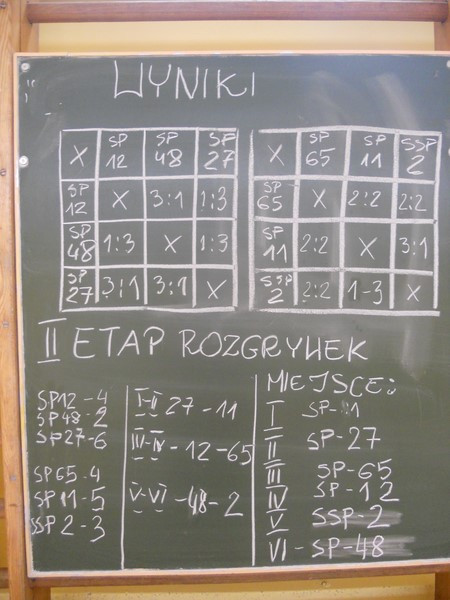 WYNIKI
X SP 12 SP 48 SP 27
SP 12 X 3:1 1:3
SP 48 1:3 X 1:3
SP 27 3:1 3:1 X
X SP 65 SP 11 SSP 2
SP 65 X 2:2 2:2
SP 11 2:2 X 3:1
SSP 2 2:2 1-3 X
II ETAP ROZGRYWEK
SP12-4
SP48-2
SP27-6
SP65-4
SP11-5
SSP2-3
I-II 27-11
III-IV -12-65
V-VI -48-2
MIEJSCE:
I SP-11
II SP-27
III SP-65
IV SP-12
V SSP-2
VI - SP-48